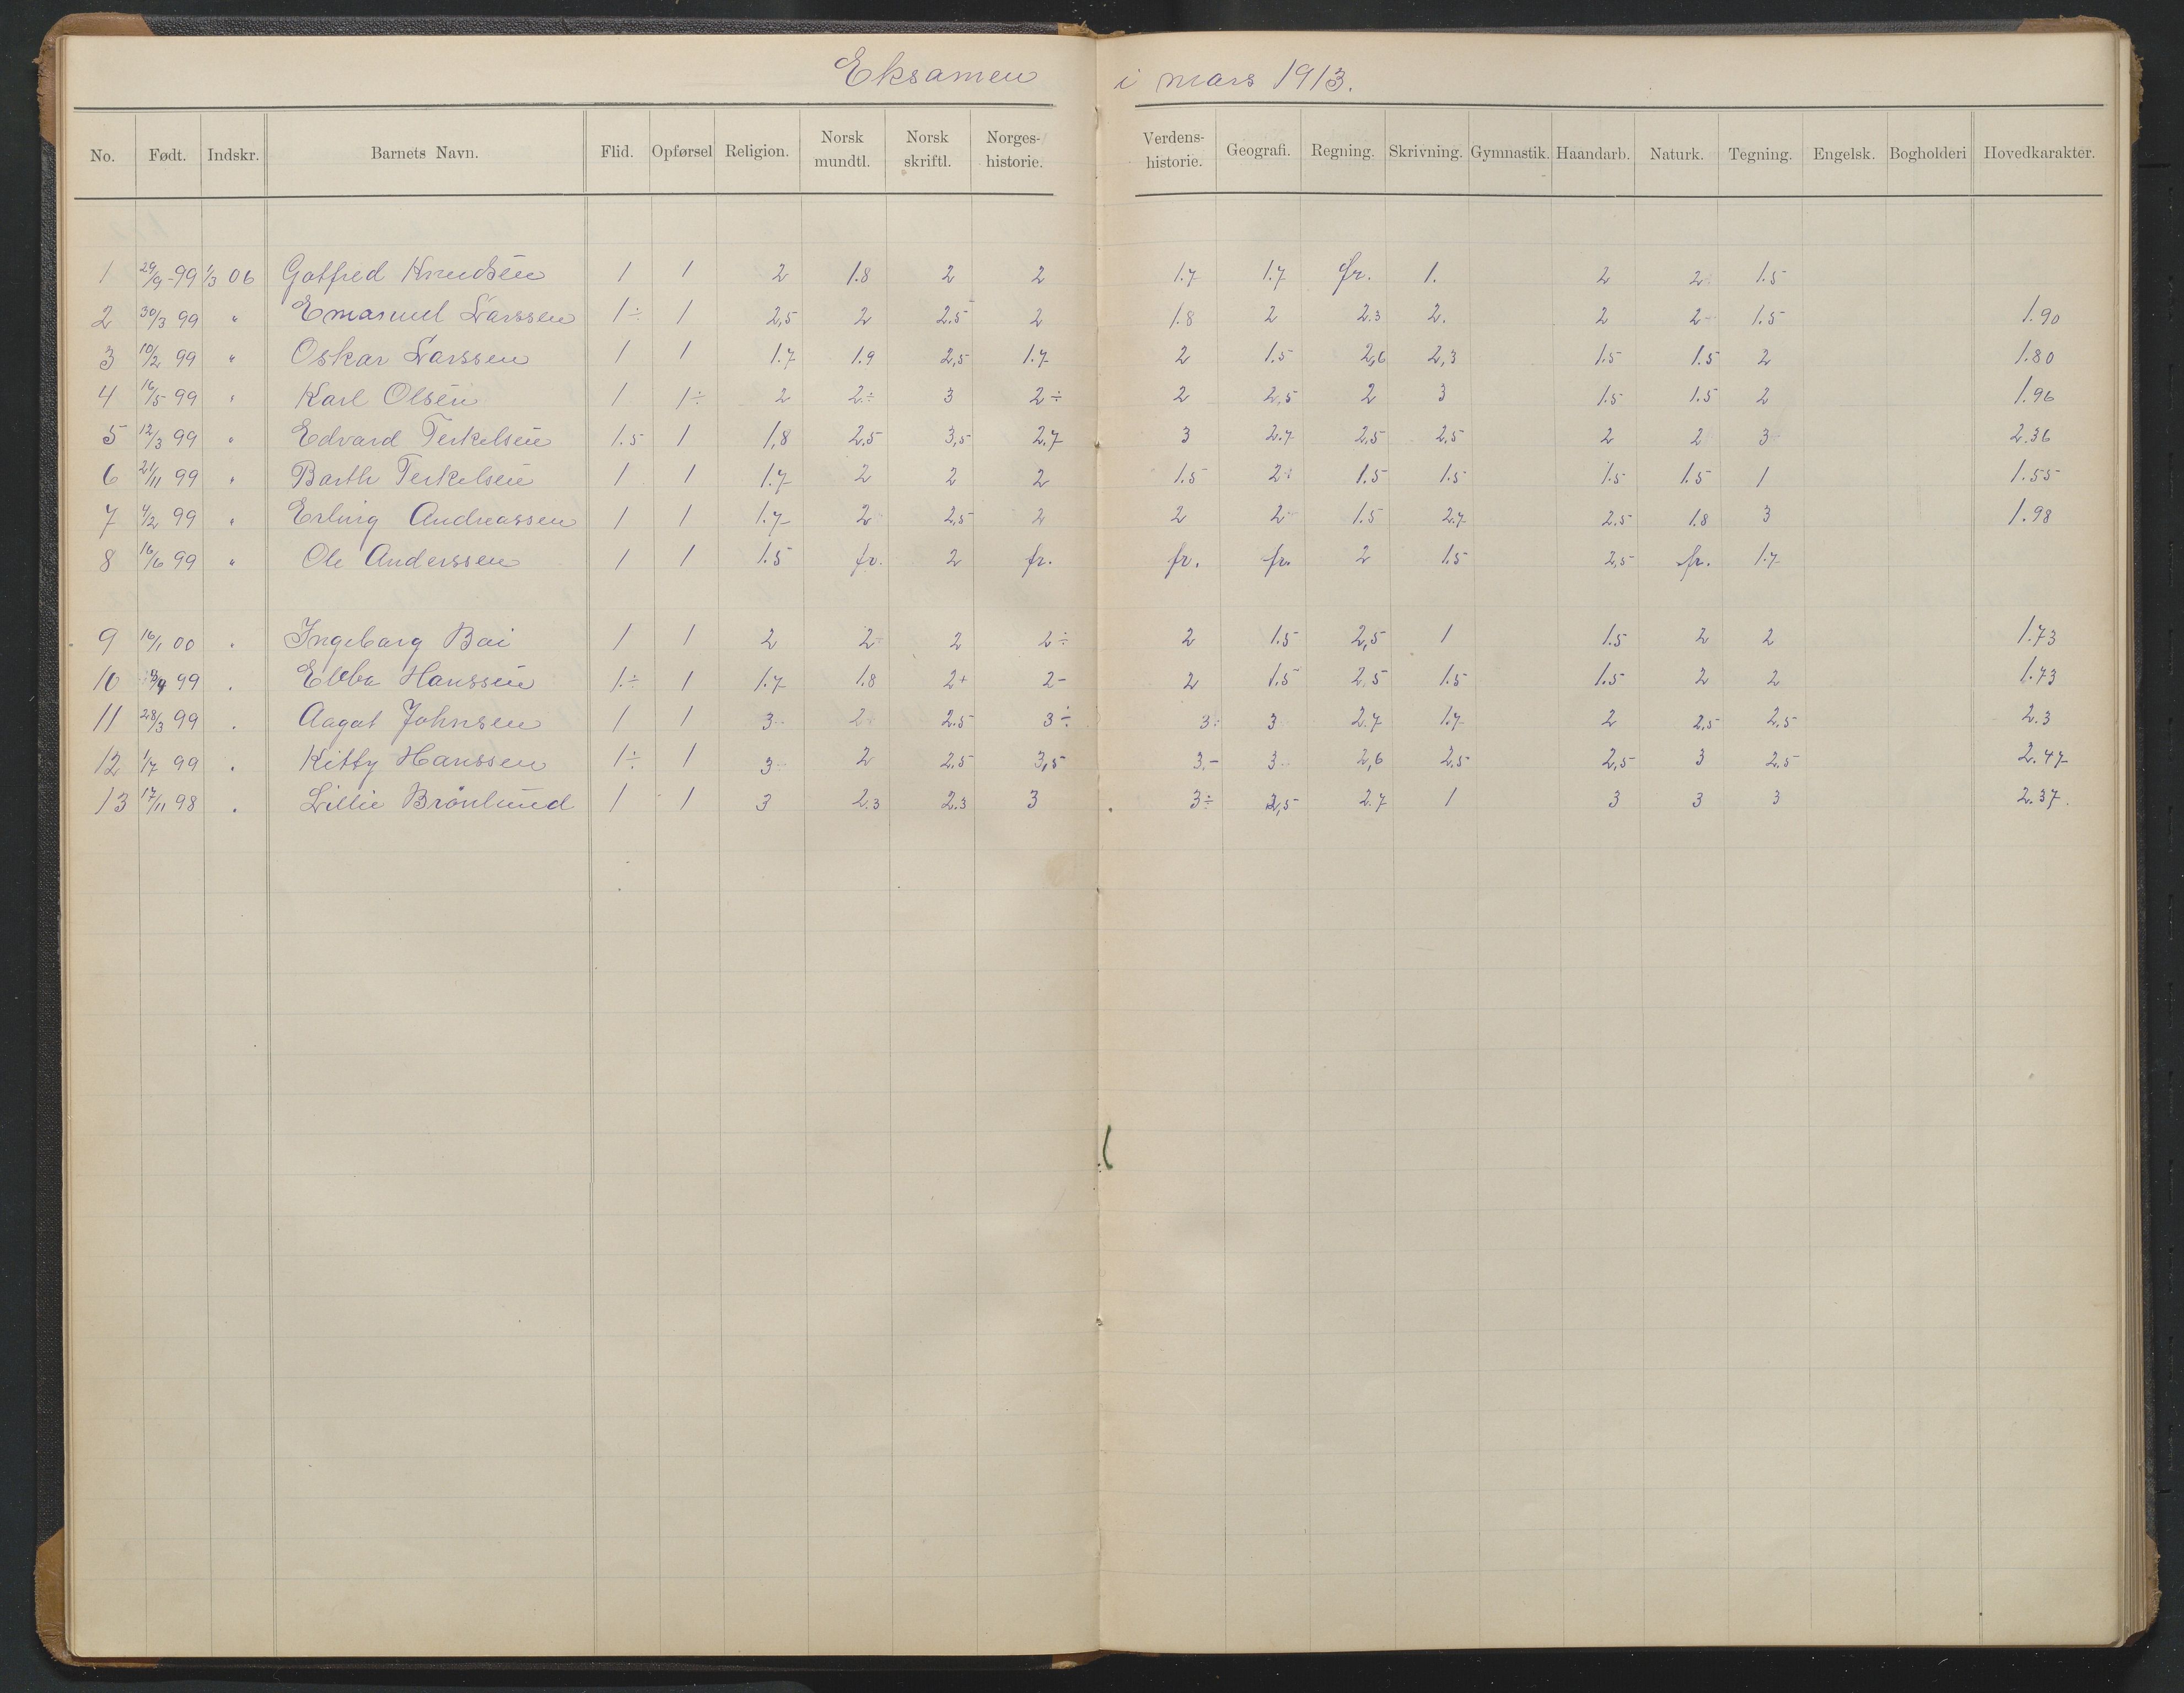 Eksamen i mars 1913.
No. Født. Indskr. Barnets Navn. Flid. Opførsel Religion. Norsk mundtl. Norsk skriftl. Norges-historie. Verdens-historie. Geografi. Regning. Skrivning. Gymnastik. Haandarb. Naturk. Tegning. Engelsk. Bogholderi Hovedkarakter.
1 29/9-99 1/3 06 Gotfred Knudsen 1 1 2 1.8 2 2 1.7 1.7 fr. 1. 2 2 1.5
2 30/3 99 " Emanuel Larssen 1÷ 1 2,5 2 2.5 2 1.8 2 2.3 2. 2 2 1.5 1.90
3 10/2 99 " Oskar Larssen 1 1 1.7 1.9 2,5 1.7 2 1.5 2,6 2,3 1.5 1.5 2 1.80
4 16/5 99 " Karl Olsen 1 1÷ 2 2÷ 3 2÷ 2 2,5 2 3 1.5 1.5 2 1.96
5 12/3 99 " Edvard Terkelsen 1.5 1 1,8 2,5 3,5 2.7 3 2.7 2,5 2,5 2 2 3 2.36
6 21/11 99 " Barth Terkelsen 1 1 1.7 2 2 2 1.5 2÷ 1.5 1.5 1.5 1.5 1 1.55
7 4/2 99 " Erling Andreassen 1 1 1.7 2 2,5 2 2 2 1.5 2.7 2.5 1.8 3 1.98
8 16/6 99 " Ole Anderssen 1 1 1.5 fr. 2 fr. fr. fr. 2 1.5 2,5 fr. 1.7
9 16/1 00 " Ingeborg Boi 1 1 2 2 2 2÷ 2 1.5 2,5 1 1.5 2 2 1.73
10 99 " Ebba Hanssen 1÷ 1 1.7 1.8 2+ 2- 2 1.5 2,5 1.5 1.5 2 2 1.73
11 28/3 99 " Aagot Johnsen 1 1 3 2 2.5 3÷ 3÷ 3 2.7 1.7 2 2,5 2,5 2.3
12 1/7 99 " Kitty Hanssen 1÷ 1 3 2 2.5 3,5 3.- 3 2,6 2.5 2,5 3 2.5 2.47
13 17/11 98 " Lillie Brönlund 1 1 3 2.3 2.3 3 3÷ 2,5 2.7 1 3 3 3 2.37.